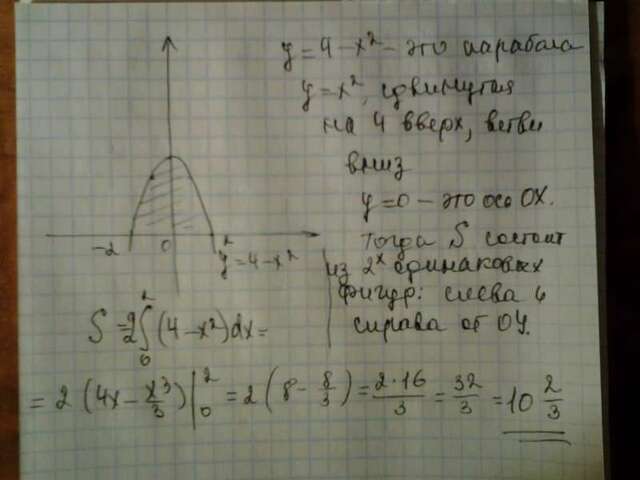 y = 4 - x² - это парабола
y = x², сдвинутая
на 4 вверх, ветви
вниз
y = 0 - это ось OX.
Тогда S состоит
из 2х одинаковых
фигур: слева и
справа от OY.
-2 0 2
y = 4 - x²
S = 2∫₀² (4 - x²) dx =
= 2 (4x - x³/3) |₀² = 2 (8 - 8/3) = 2·16/3 = 32/3 = 10 2/3